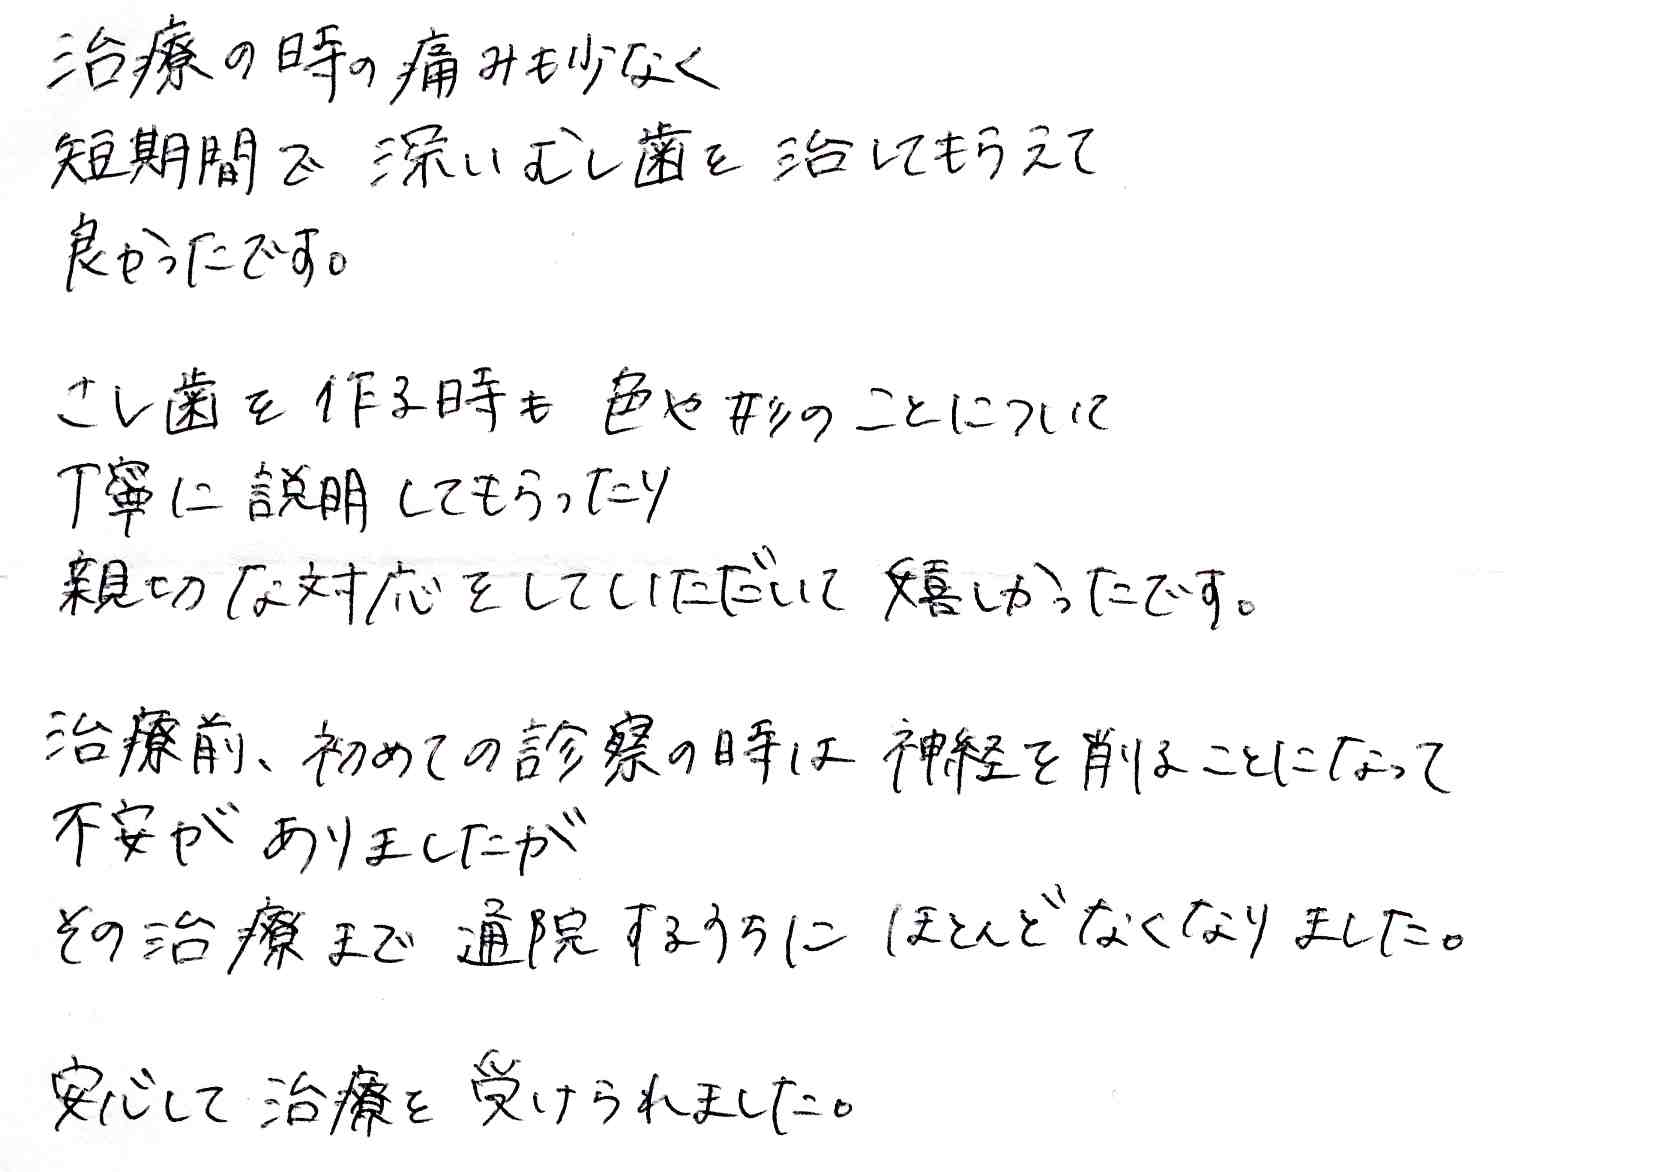 治療の時の痛みも少なく
短期間で 深いむし歯を 治してもらえて
良かったです。
さし歯を 作る時も 色や形のことについて
丁寧に 説明してもらったり
親切な対応をしていただいて 嬉しかったです。
治療前、初めての診察の時は 神経を削ることになって
不安が ありましたが
その治療まで 通院するうちに ほとんどなくなりました。
安心して 治療を 受けられました。